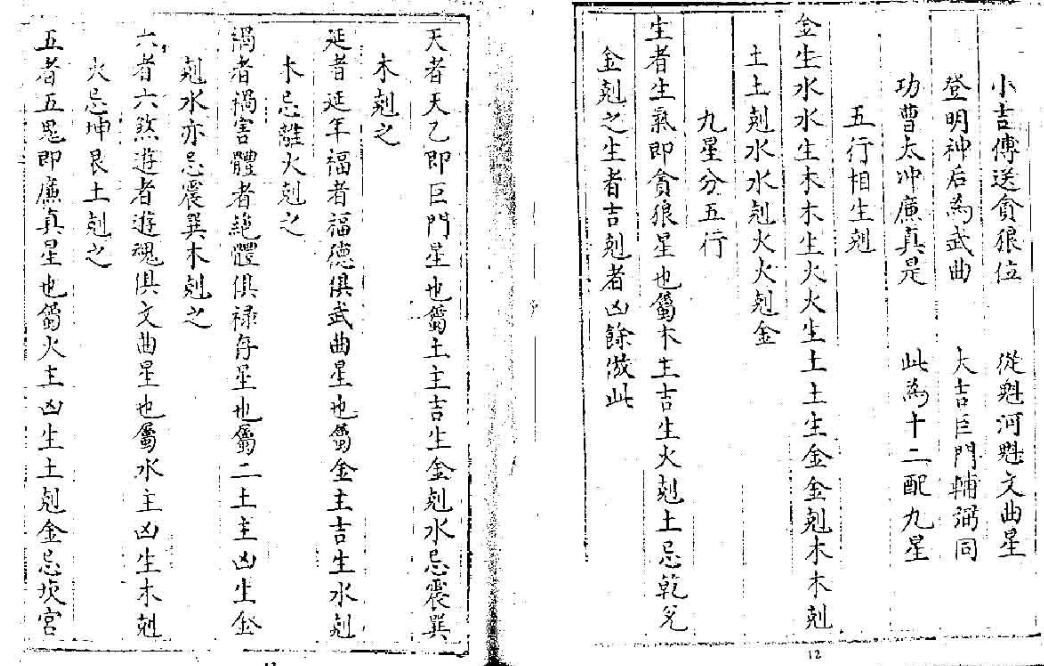 小吉傳送貪狼位 從魁河魁文曲星
登明神后為武曲 大吉巨門輔弼同
功曹太冲廉真是 此為十二配九星
五行相生剋
金生水水生木木生火火生土土生金金剋木木剋
土土剋水水剋火火剋金
九星分五行
生者生氣即貪狼星也屬木主吉生火剋土忌乾兌
金剋之生者吉剋者凶餘倣此
12
天者天乙即巨門星也屬土主吉生金剋水忌震巽
木剋之
延者延年福者福德俱武曲星也屬金主吉生水剋
木忌離火剋之
禍者禍害體者絶體俱禄存星也屬二土主凶生金
剋水亦忌震巽木剋之
六者六煞遊者遊魂俱文曲星也屬水主凶生木剋
火忌坤艮土剋之
五者五鬼即廉真星也屬火主凶生土剋金忌坎宮